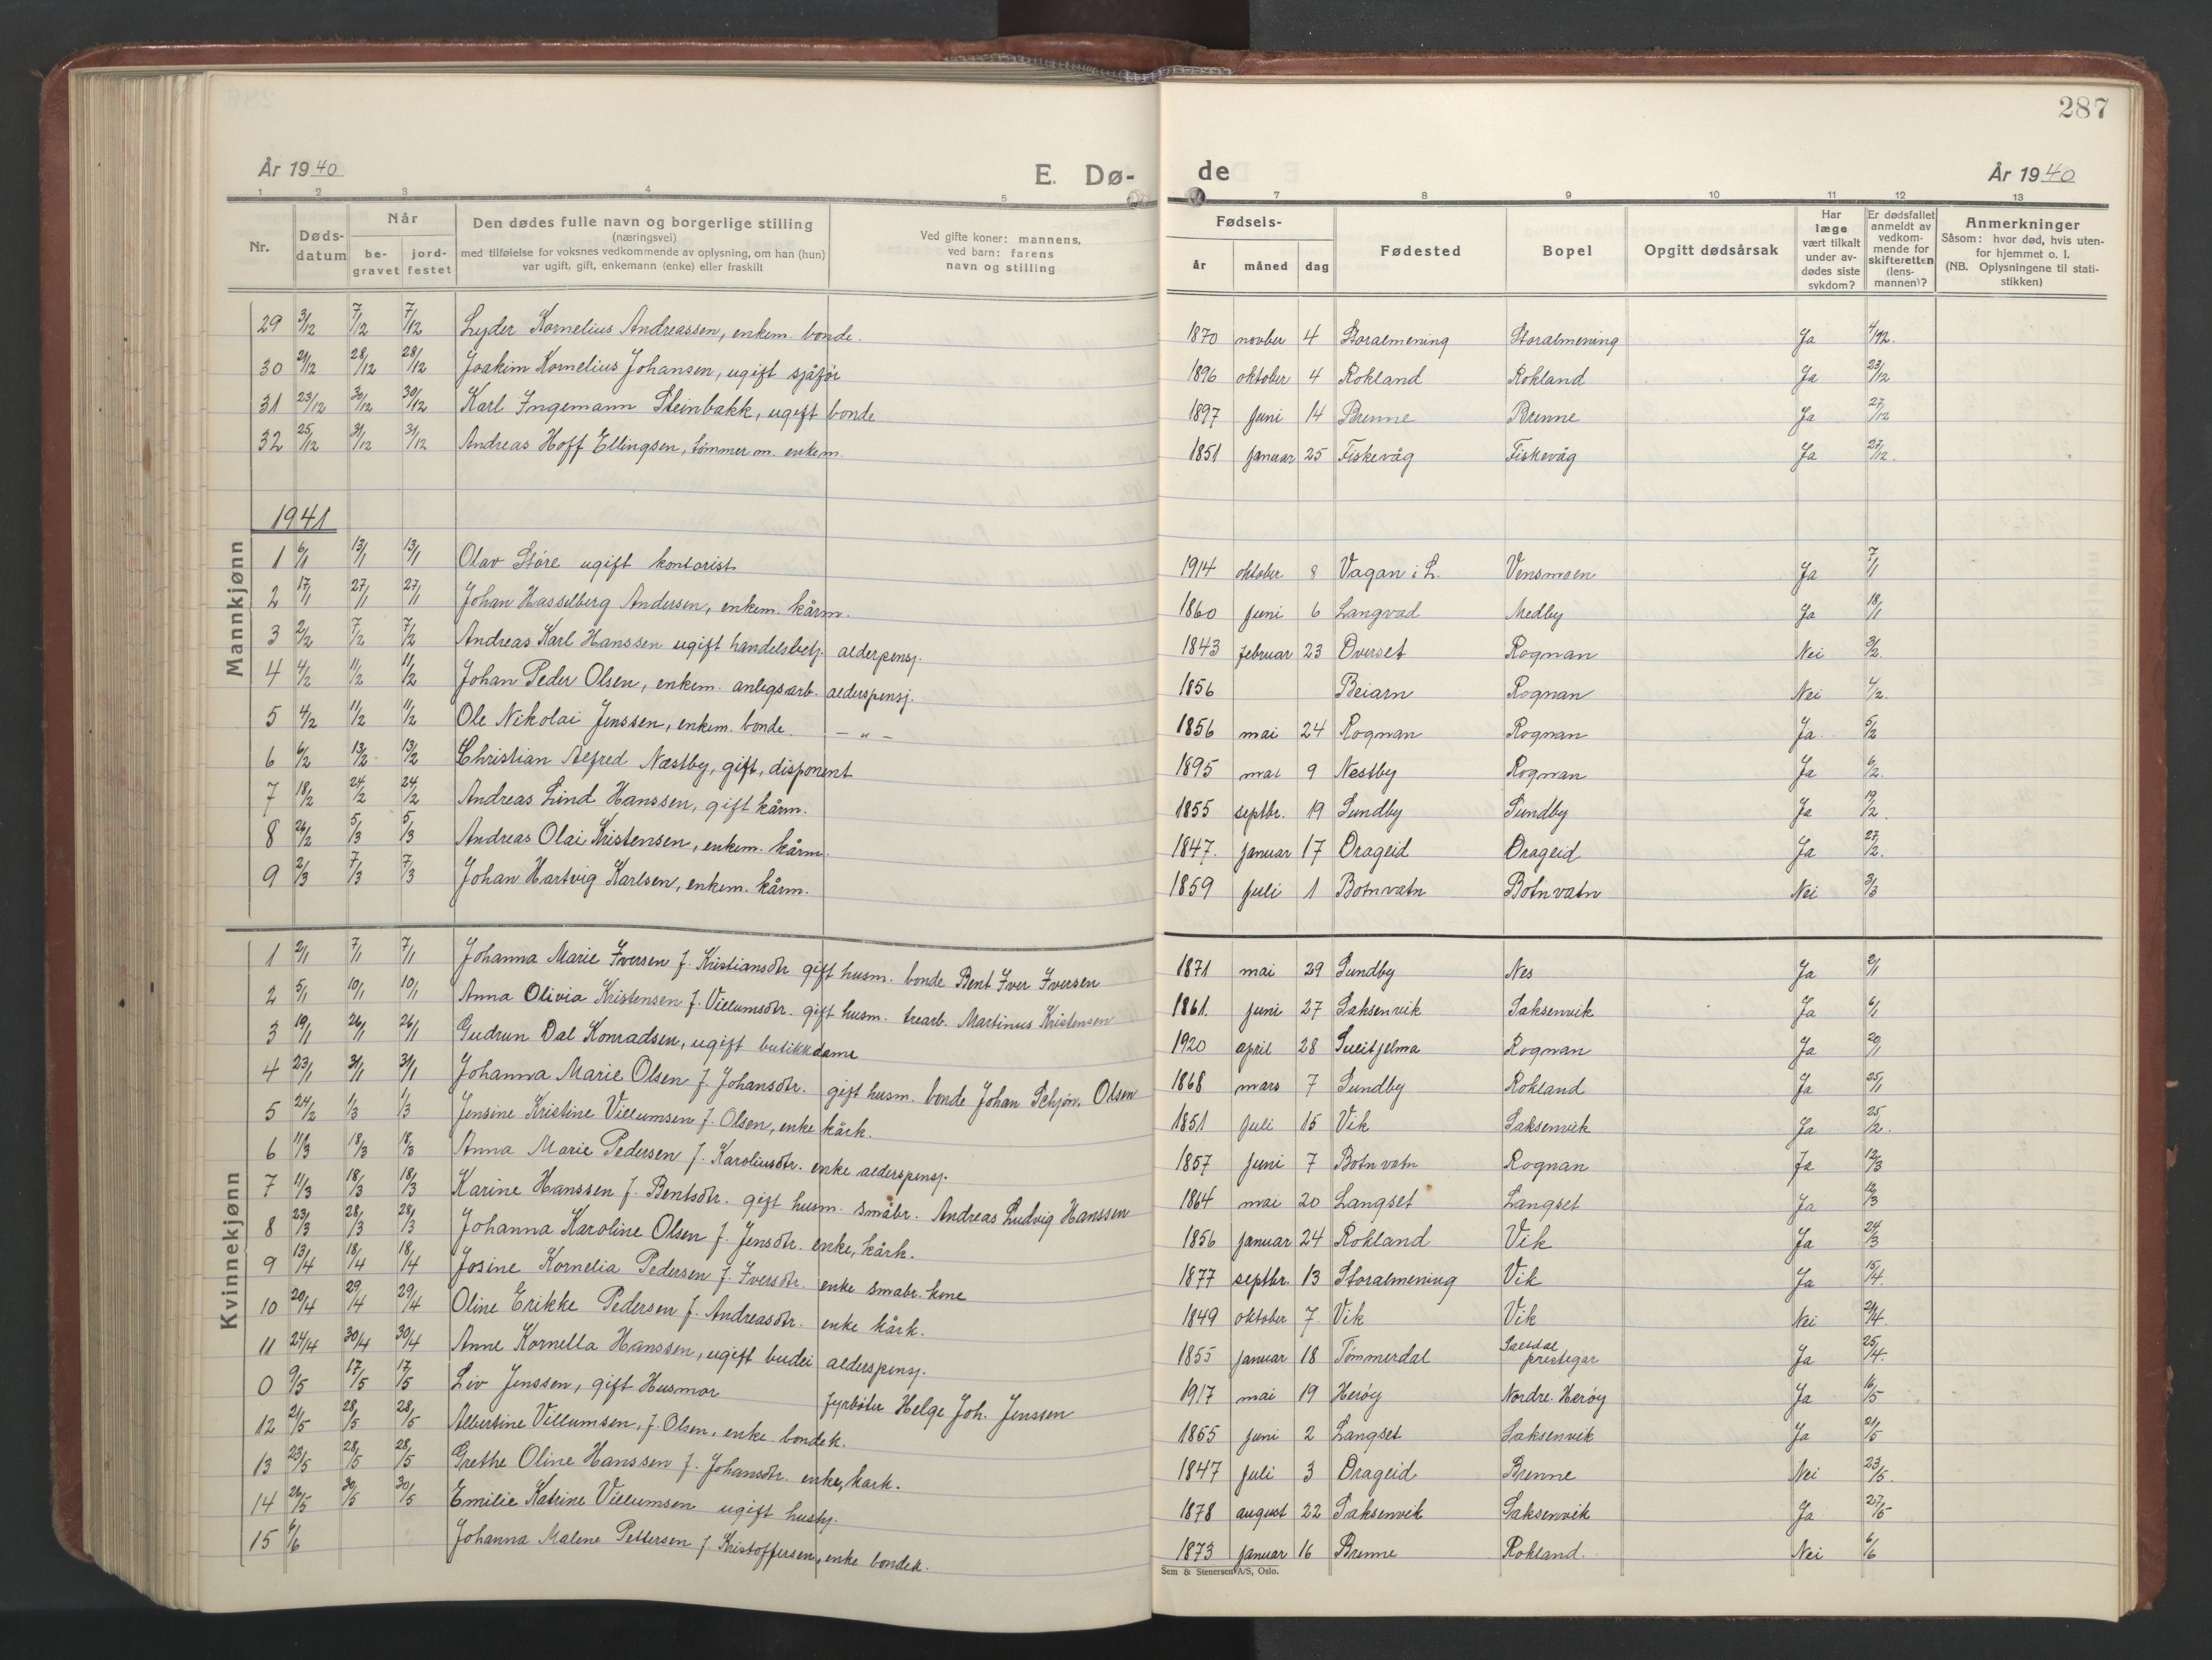 287
År 1940 E. Dø- de År 1940
1 2 3 4 5 7 8 9 10 11 12 13
Nr. | Dødsdatum | Når begravet | Når jordfestet | Den dødes fulle navn og borgerlige stilling (næringsvei) med tilføielse for voksnes vedkommende av oplysning, om han (hun) var ugift, gift, enkemann (enke) eller fraskilt | Ved gifte koner: mannens, ved barn: farens navn og stilling | Fødsels- år | måned | dag | Fødested | Bopel | Opgitt dødsårsak | Har læge vært tilkalt under avdødes siste sykdom? | Er dødsfallet anmeldt av vedkommende for skifteretten (lensmannen)? | Anmerkninger Såsom: hvor død, hvis utenfor hjemmet o. l. (NB. Oplysningene til statistikken)
29 3/12 7/12 7/12 Lyder Kornelius Andreassen, enkem. bonde. 1870 novber 4 Storalmening Storalmening Ja 4/12.
30 21/12 28/12 28/12 Joakim Kornelius Johansen, ugift sjåfør 1896 oktober 4 Rokland Rokland Ja 23/12
31 23/12 30/12 30/12 Karl Ingemann Steinbakk, ugift bonde 1897 juni 14 Brenne Brenne Ja 27/12
32 25/12 31/12 31/12 Andreas Hoff Ellingsen, tømmerm. enkem. 1851 januar 25 Fiskevåg Fiskevåg Ja 27/12.
1941
Mannkjønn
1 6/1 13/1 13/1 Olav Støre ugift kontorist 1914 oktober 8 Vagan i L. Vensmoen Ja 7/1
2 17/1 27/1 27/1 Johan Hasselberg Andersen, enkem. kårm. 1860 juni 6 Langvad Medby Ja 18/1
3 2/2 7/2 7/2 Andreas Karl Hanssen ugift handelsbetj. alderpensj. 1843 februar 23 Øverset Rognan Nei 3/2.
4 4/2 11/2 11/2 Johan Peder Olsen, enkem. anligsarb. alderspensj. 1856 Beiarn Rognan Nei 4/2.
5 4/2 11/2 11/2 Ole Nikolai Jenssen, enkem. bonde. — „ — 1856 mai 24 Rognan Rognan Ja 5/2
6 6/2 13/2 13/2 Christian Alfred Næstby, gift, disponent 1895 mai 9 Næstby Rognan Ja 6/2.
7 18/2 24/2 24/2 Andreas Lind Hanssen, gift kårm. 1855 septbr. 19 Sundby Sundby Ja 19/2.
8 26/2 5/3 5/3 Andreas Olai Kristensen, enkem. kårm. 1847. januar 17 Drageid Drageid Ja 27/2.
9 2/3 7/3 7/3 Johan Hartvig Karlsen, enkem. kårm. 1859 juli 1 Botnvatn Botnvatn Nei 3/3
Kvinnekjønn
1 2/1 7/1 7/1 Johanna Marie Iversen f. Kristiansdtr gift husm. bonde Bent Iver Iversen 1871 mai 29 Sundby Nes Ja 2/1
2 5/1 10/1 10/1 Anna Olivia Kristensen f. Villumsdtr. gift husm. trearb. Martinus Kristensen 1861. juni 27 Saksenvik Saksenvik Ja 6/1
3 19/1 26/1 26/1 Gudrun Dal Konradsen, ugift butikkdame 1920 april 28 Sulitjelma Rognan Ja 20/1
4 23/1 31/1 31/1 Johanna Marie Olsen f. Johansdtr. gift husm. bonde Johan Schjøn. Olsen 1868 mars 7 Sundby Rokland Ja 25/1
5 24/2 1/3 1/3 Jensine Kristine Villumsen f. Olsen, enke kårk. 1851 juli 15 Vik Saksenvik Ja 25/2.
6 11/3 18/3 18/3 Anna Marie Pedersen f. Karoliusdtr. enke alderspensj. 1857 juni 7 Botnvatn Rognan Ja 12/3
7 11/3 18/3 18/3 Karine Hanssen f. Bentsdtr. gift husm. småbr. Andreas Ludvig Hanssen 1864 mai 20 Langset Langset Ja 12/3
8 23/3 28/3 28/3 Johanna Karoline Olsen f. Jensdtr. enke, kårk. 1856 januar 24 Rokland Vik Ja 24/3
9 13/4 18/4 18/4 Josine Kornelia Pedersen f. Iversdtr. enke småbr. kone 1877 septbr. 13 Storalmening Vik Ja 15/4.
10 20/4 29/4 29/4 Oline Erikke Pedersen f. Andreasdtr. enke kårk. 1849 oktober 7. Vik Vik Nei 21/4.
11 24/4 30/4 30/4 Anne Kornella Hanssen, ugift budei alderspensj. 1855 januar 18 Tømmerdal Saltdal prestegar Ja 25/4.
0 9/5 17/5 17/5 Liv Jenssen, gift Husmor fyrbøter Helge Joh. Jenssen 1917 mai 19 Herøy Nordre Herøy Ja 16/5
12 21/5 28/5 28/5 Albertine Villumsen, f. Olsen, enke bondek. 1865 juni 2 Langset Saksenvik Ja 21/5
13 23/5 28/5 28/5 Grethe Oline Hanssen f. Johansdtr. enke, kårk. 1847 juli 3 Drageid Brenne Nei 23/5.
14 26/5 30/5 30/5 Emilie Katrine Villumsen ugift hushj. 1878 august 22 Saksenvik Saksenvik Ja 27/5
15 6/6 Johanna Malene Pettersen f. Kristoffersen, enke bondek. 1873 januar 16 Brenne Rokland. Nei 6/6
Sem & Stenersen A/S, Oslo.